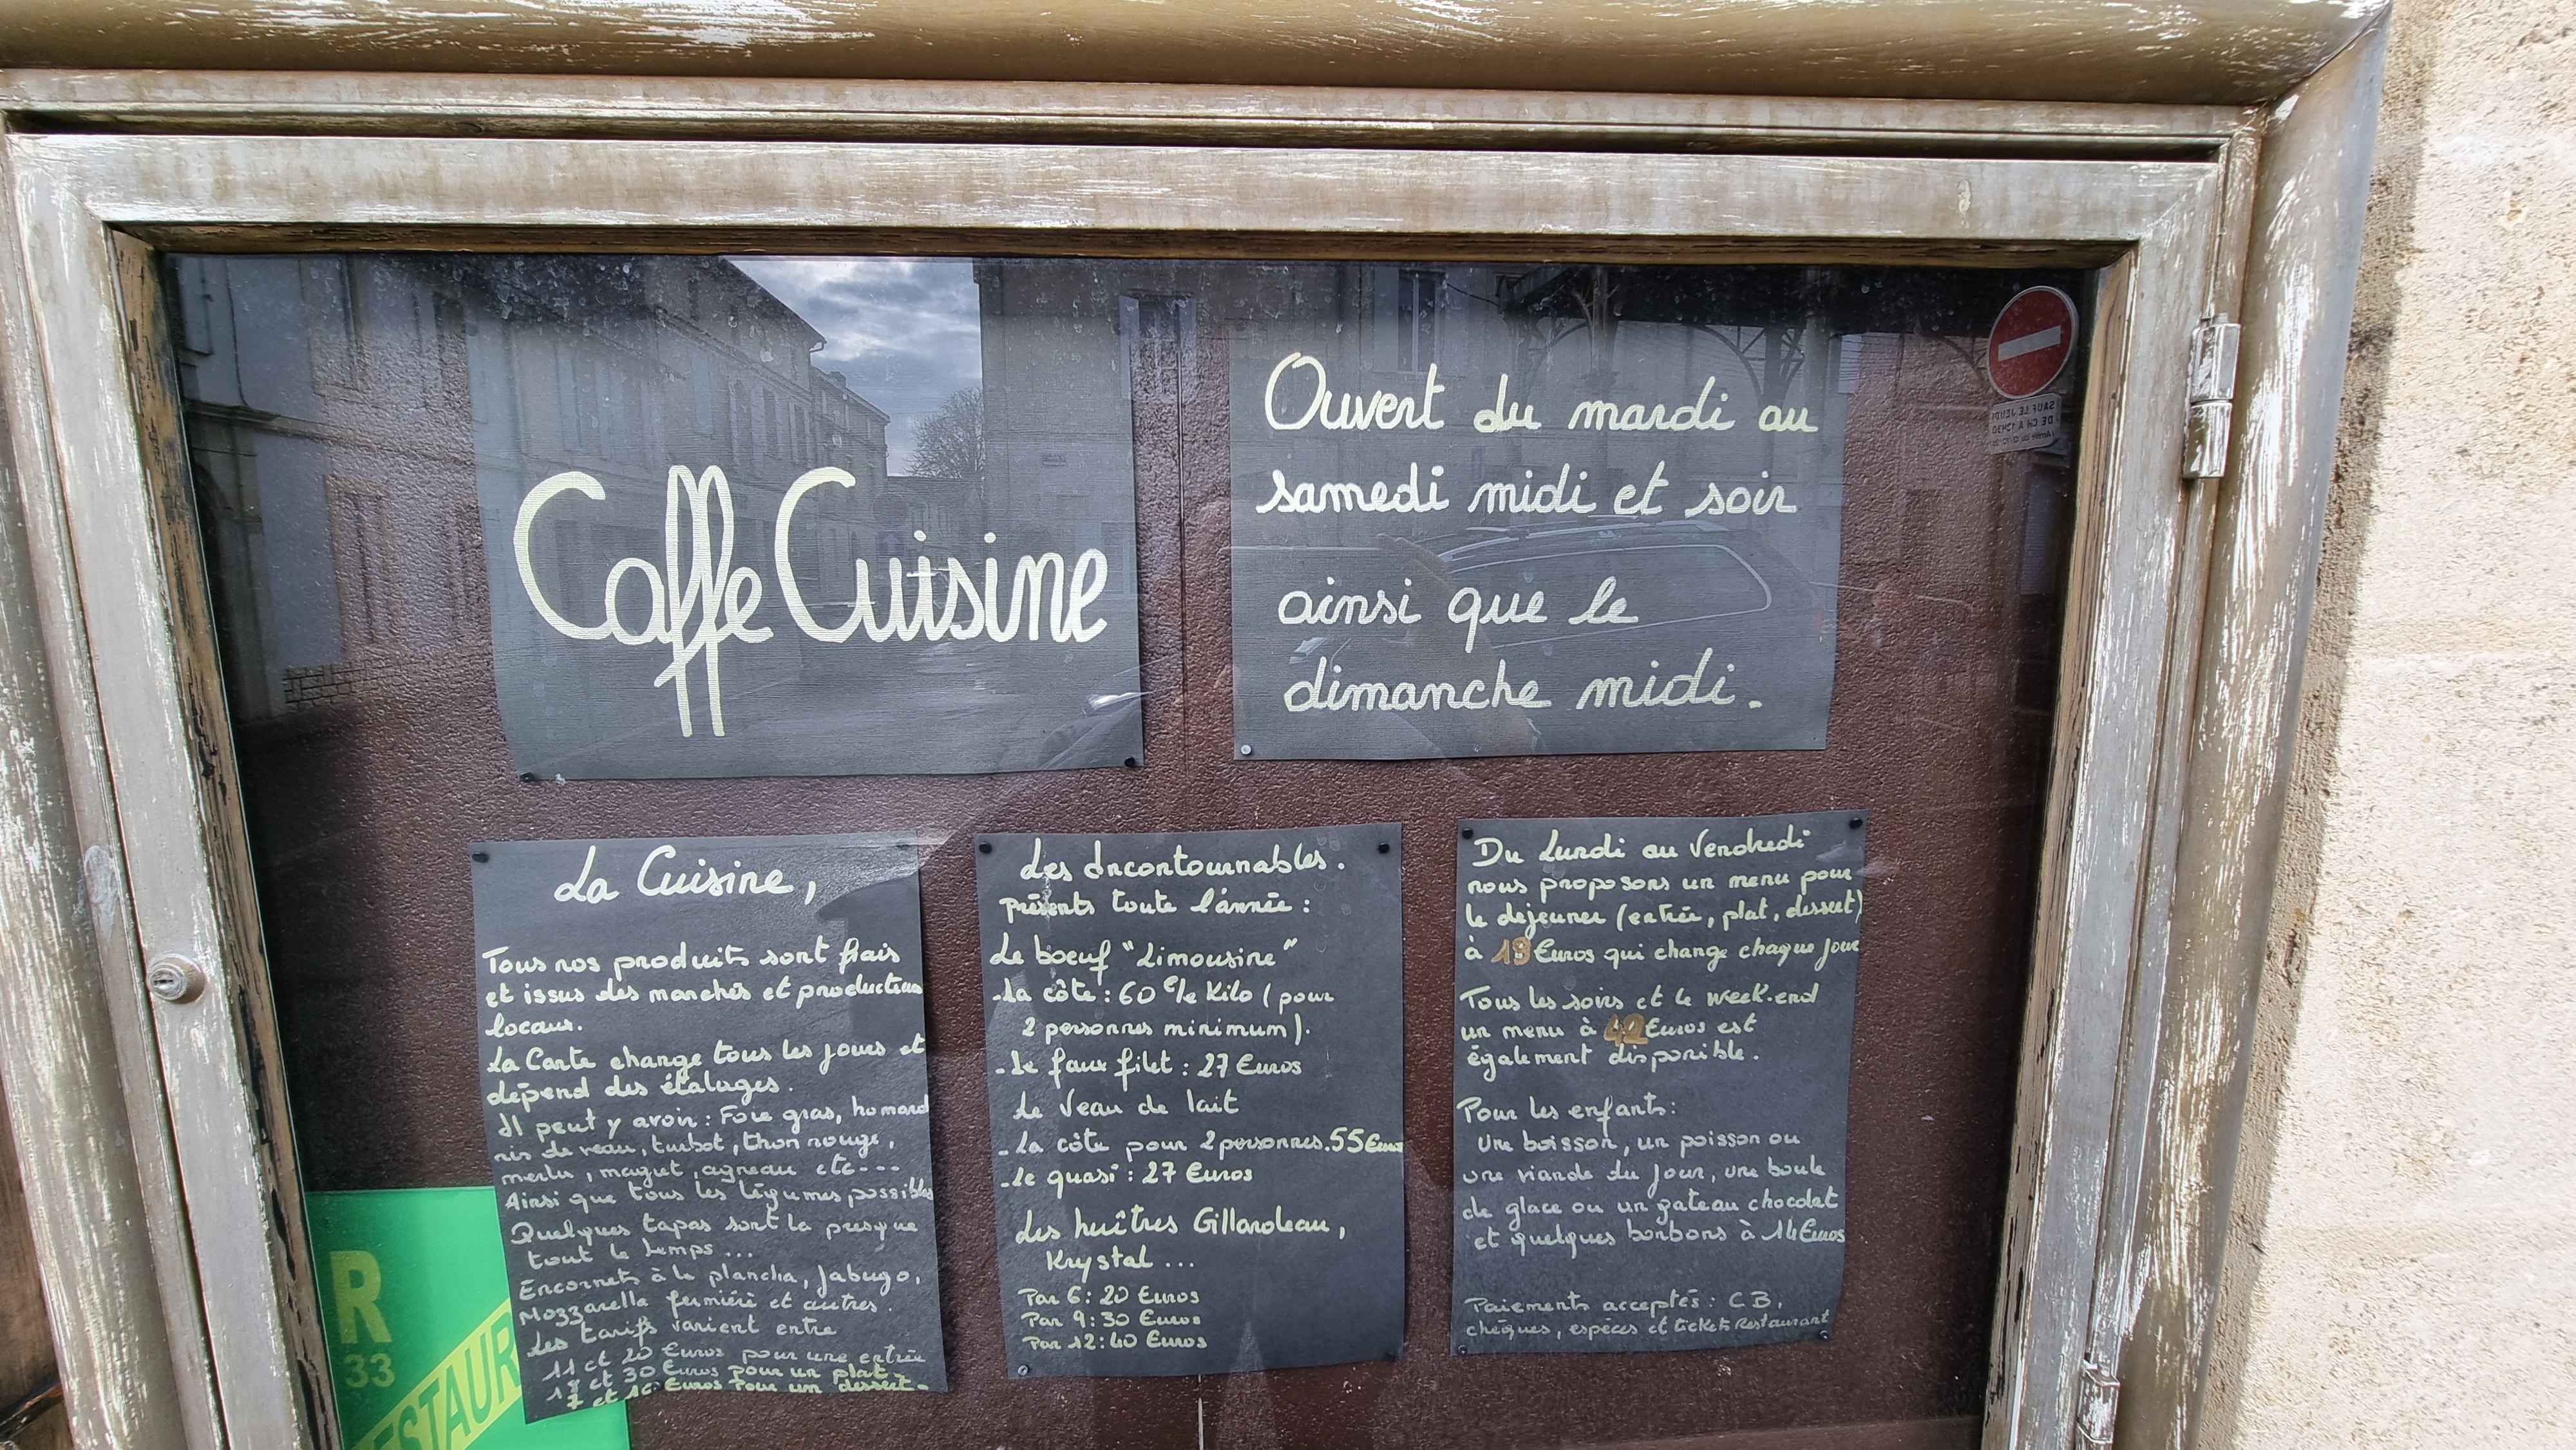 Caffe Cuisine
Ouvert du mardi au
samedi midi et soir
ainsi que le
dimanche midi.
La Cuisine,
Tous nos produits sont frais
et issus des marchés et producteurs
locaux.
La Carte change tous les jours et
dépend des étalages.
Il peut y avoir : Foie gras, homard
ris de veau, turbot, thon rouge,
merlu, magret, agneau etc---
Ainsi que tous les légumes possibles
Quelques tapas sont là presque
tout le temps ...
Encornets à la plancha, Jabugo,
Mozzarella fermière et autres.
Les tarifs varient entre
11 et 20 Euros pour une entrée
et 30 Euros pour un plat
7 et Euros Pour un dessert.
Les Incontournables.
présents toute l'année :
Le boeuf "Limousine"
-La côte : 60 €/le Kilo ( pour
2 personnes minimum).
-Le faux filet : 27 Euros
Le Veau de lait
-La côte pour 2 personnes. 55 Euros
-Le quasi : 27 Euros
Les huîtres Gillardeau,
Krystal ...
Par 6 : 20 Euros
Par 9 : 30 Euros
Par 12 : 40 Euros
Du Lundi au Vendredi
nous proposons un menu pour
le dejeuner (entrée, plat, dessert)
à 19 Euros qui change chaque Jour
Tous les soirs et le week-end
un menu à 42 Euros est
également disponible.
Pour les enfants :
Une boisson, un poisson ou
une viande du Jour, une boule
de glace ou un gateau chocolat
et quelques bonbons à 14 Euros
Paiements acceptés : CB,
chèques, espèces et tickets Restaurant
R
33
STAUR
SAUF LE JEUDI